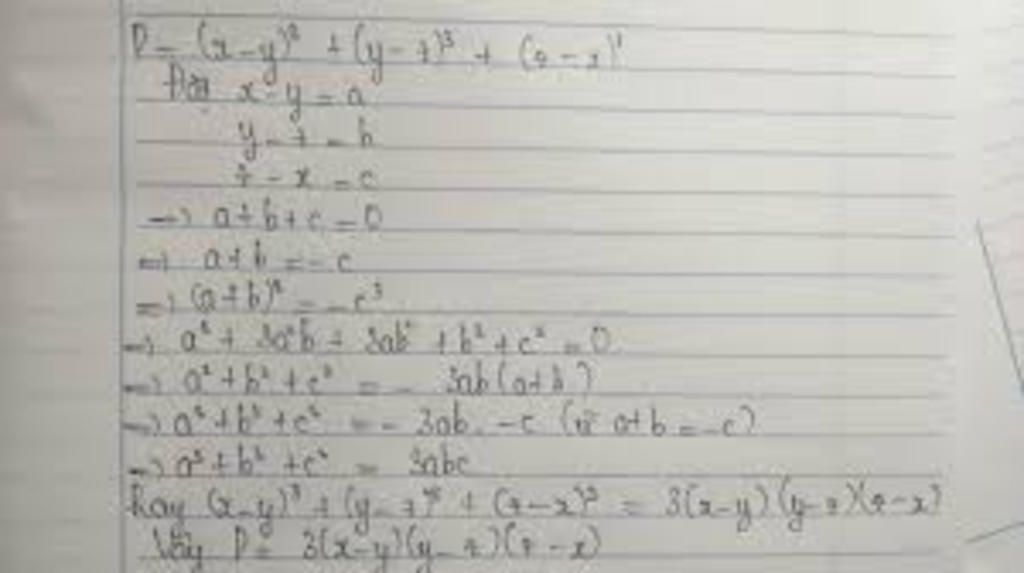 P = (x-y)³ + (y-z)³ + (z-x)³
Đặt x-y = a
y-z = b
z-x = c
=> a+b+c = 0
=> a+b = -c
=> (a+b)³ = -c³
=> a³ + 3a²b + 3ab² + b³ + c³ = 0
=> a³ + b³ + c³ = - 3ab(a+b)
=> a³ + b³ + c³ = - 3ab. -c (vì a+b = -c)
=> a³ + b³ + c³ = 3abc
hay (x-y)³ + (y-z)³ + (z-x)³ = 3(x-y)(y-z)(z-x)
Vậy P = 3(x-y)(y-z)(z-x)